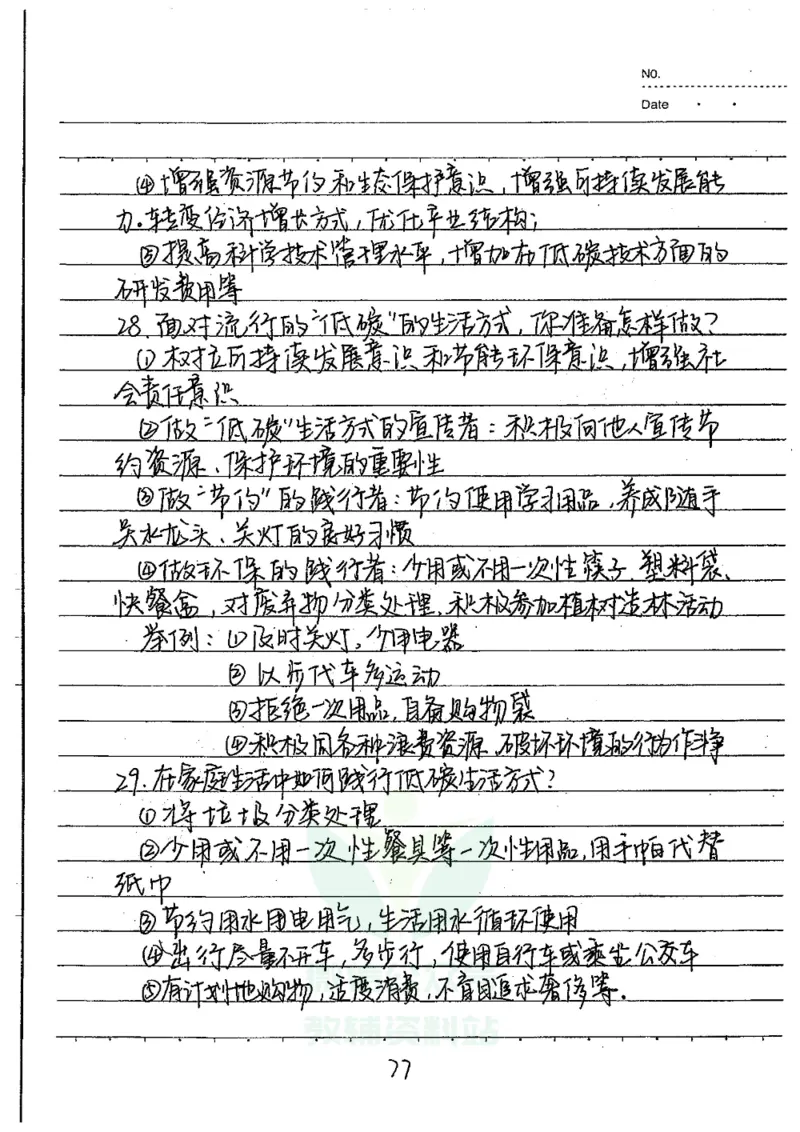 NO.
Date
④增强资源节约和生态保护意识，增强可持续发展能
力.转变经济增长方式，优化产业结构；
⑤提高科学技术管理水平，增加在低碳技术方面的
研发费用等
28.面对流行的“低碳”的生活方式，你准备怎样做？
①树立可持续发展意识和节能环保意识，增强社
会责任意识
②做“低碳”生活方式的宣传者：积极向他人宣传节
约资源、保护环境的重要性
③做“节约”的践行者：节约使用学习用品，养成随手
关水龙头、关灯的良好习惯
④做环保的践行者：少用或不用一次性筷子、塑料袋、
快餐盒，对废弃物分类处理，积极参加植树造林活动
举例：①及时关灯，少用电器
②以步代车多运动
③拒绝一次用品，自备购物袋
④积极同各种浪费资源、破坏环境的行为作斗争
29.在家庭生活中如何践行低碳生活方式？
①将垃圾分类处理
②少用或不用一次性餐具等一次性用品，用手帕代替
纸巾
③节约用水用电用气，生活用水循环使用
④出行尽量不开车，多步行，使用自行车或乘坐公交车
⑤有计划地购物，适度消费，不盲目追求奢侈等.
教辅资料站
77